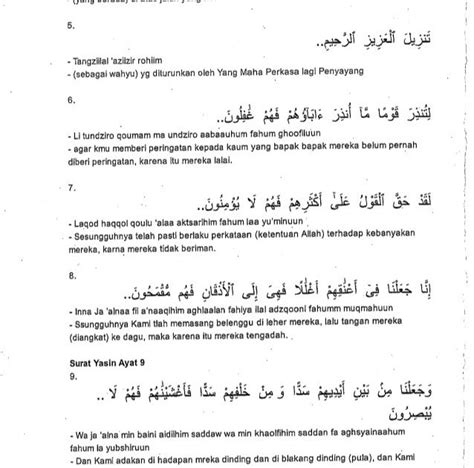 5.
تَنزِيلَ ٱلْعَزِيزِ ٱلرَّحِيمِ..
- Tangziilal 'aziizir rohiim
- (sebagai wahyu) yg diturunkan oleh Yang Maha Perkasa lagi Penyayang
6.
لِتُنذِرَ قَوْمًا مَّآ أُنذِرَ ءَابَآؤُهُمْ فَهُمْ غَٰفِلُونَ..
- Li tundziro qoumam ma undziro aabaauhum fahum ghoofiluun
- agar kmu memberi peringatan kepada kaum yang bapak bapak mereka belum pernah
diberi peringatan, karena itu mereka lalai.
7.
لَقَدْ حَقَّ ٱلْقَوْلُ عَلَىٰٓ أَكْثَرِهِمْ فَهُمْ لَا يُؤْمِنُونَ..
- Laqod haqqol qoulu 'alaa aktsarihim fahum laa yu'minuun
- Sesungguhnya telah pasti berlaku perkataan (ketentuan Allah) terhadap kebanyakan
mereka, karna mereka tidak beriman.
8.
إِنَّا جَعَلْنَا فِىٓ أَعْنَٰقِهِمْ أَغْلَٰلًا فَهِىَ إِلَى ٱلْأَذْقَانِ فَهُم مُّقْمَحُونَ..
- Inna Ja 'alnaa fil a'naaqihim aghlaalan fahiya ilal adzqooni fahumm muqmahuun
- Ssungguhnya Kami tlah memasang belenggu di leher mereka, lalu tangan mereka
(diangkat) ke dagu, maka karena itu mereka tengadah.
Surat Yasin Ayat 9
9.
وَجَعَلْنَا مِنۢ بَيْنِ أَيْدِيهِمْ سَدًّا وَ مِنْ خَلْفِهِمْ سَدًّا فَأَغْشَيْنَٰهُمْ فَهُمْ لَا ..
يُبْصِرُونَ
- Wa ja 'alna min baini aidiihim saddaw wa min khaolfihim saddan fa aghsyainaahum
fahum la yubshiruun
- Dan Kami adakan di hadapan mreka dinding dan di blakang dinding (pula), dan Kami